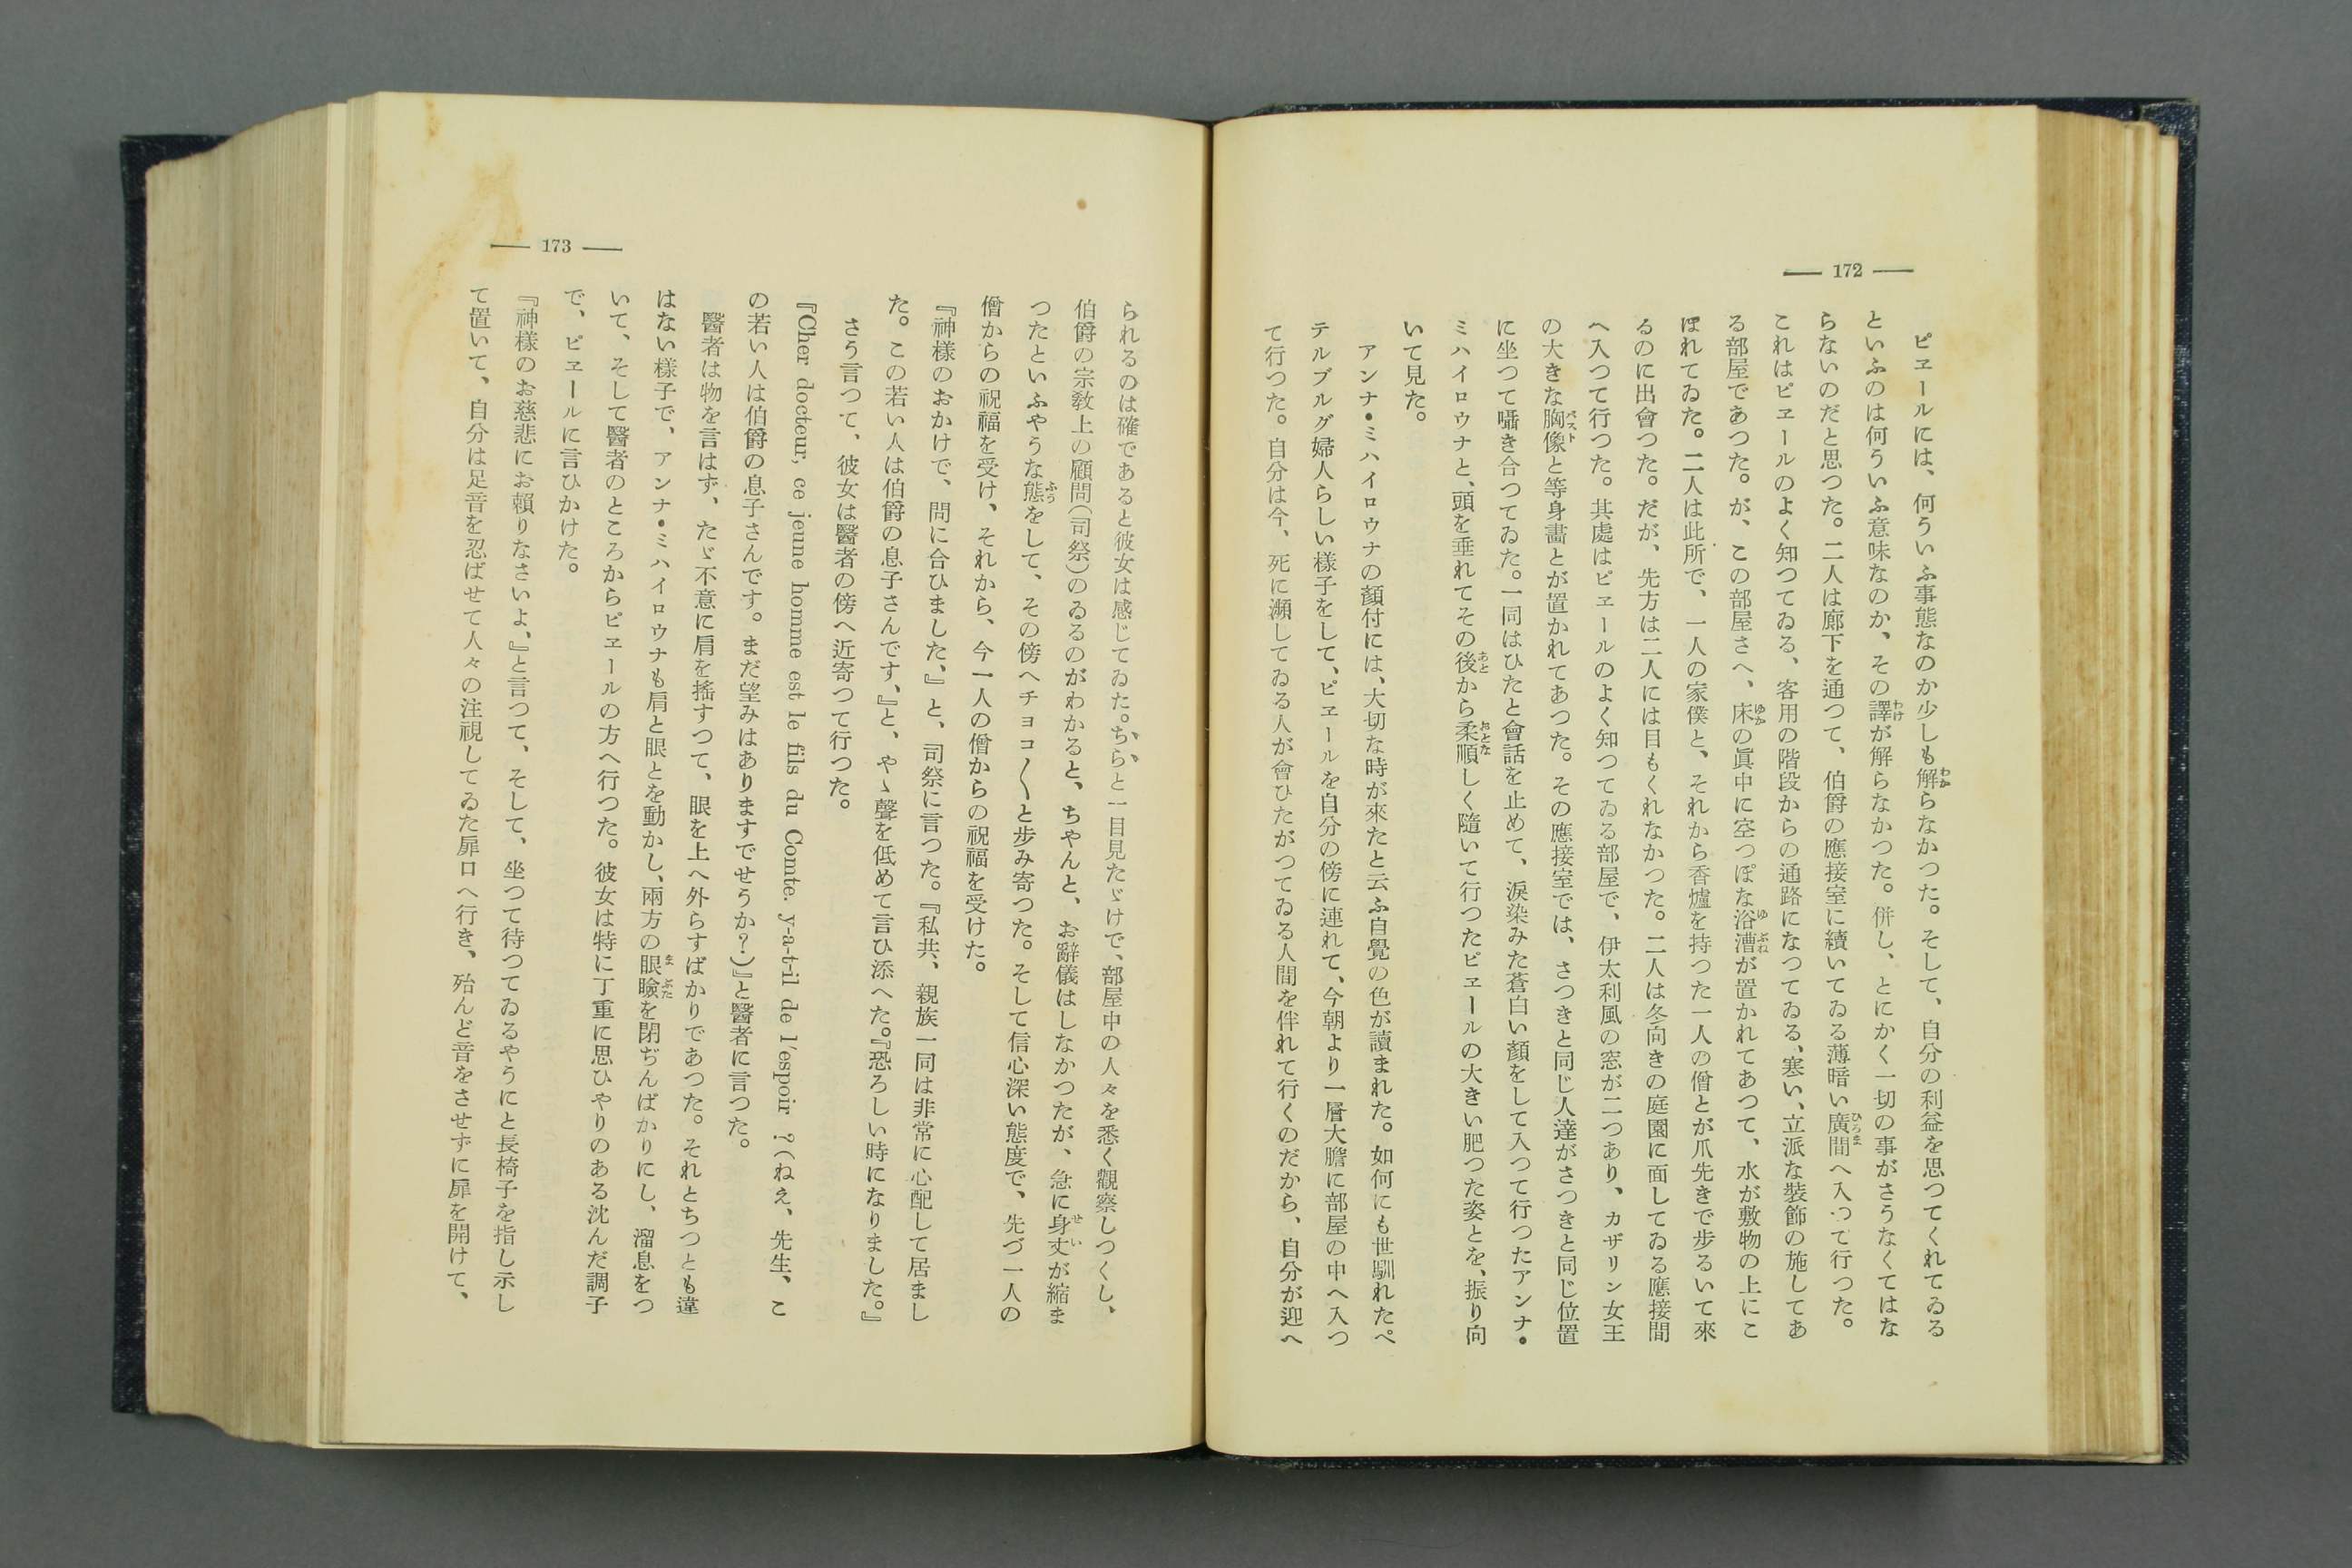 — 172 —
ピエールには、何ういふ事態なのか少しも解らなかつた。そして、自分の利益を思つてくれてゐる
といふのは何ういふ意味なのか、その譯が解らなかつた。併し、とにかく一切の事がさうなくてはな
らないのだと思つた。二人は廊下を通つて、伯爵の應接室に續いてゐる薄暗い廣間へ入つて行つた。
これはピエールのよく知つてゐる、客用の階段からの通路になつてゐる、寒い、立派な裝飾の施してあ
る部屋であつた。が、この部屋さへ、床の眞中に空つぽな浴漕が置かれてあつて、水が敷物の上にこ
ぼれてゐた。二人は此所で、一人の家僕と、それから香爐を持つた一人の僧とが爪先きで歩るいて來
るのに出會つた。だが、先方は二人には目もくれなかつた。二人は冬向きの庭園に面してゐる應接間
へ入つて行つた。其處はピエールのよく知つてゐる部屋で、伊太利風の窓が二つあり、カザリン女王
の大きな胸像と等身畫とが置かれてあつた。その應接室では、さつきと同じ人達がさつきと同じ位置
に坐つて囁き合つてゐた。一同はひたと會話を止めて、淚染みた蒼白い顏をして入つて行つたアンナ・
ミハイロウナと、頭を垂れてその後から柔順しく隨いて行つたピエールの大きい肥つた姿とを、振り向
いて見た。
アンナ・ミハイロウナの顏付には、大切な時が來たと云ふ自覺の色が讀まれた。如何にも世馴れたペ
テルブルグ婦人らしい樣子をして、ピエールを自分の傍に連れて、今朝より一層大膽に部屋の中へ入つ
て行つた。自分は今、死に瀕してゐる人が會ひたがつてゐる人間を伴れて行くのだから、自分が迎へ
— 173 —
られるのは確であると彼女は感じてゐた。ちらと一目見たゞけで、部屋中の人々を悉く觀察しつくし、
伯爵の宗教上の顧問(司祭)のゐるのがわかると、ちやんと、お辭儀はしなかつたが、急に身丈が縮ま
つたといふやうな態をして、その傍へチョコ〱と歩み寄つた。そして信心深い態度で、先づ一人の
僧からの祝福を受け、それから、今一人の僧からの祝福を受けた。
『神樣のおかけで、間に合ひました、』と、司祭に言つた。『私共、親族一同は非常に心配して居まし
た。この若い人は伯爵の息子さんです、』と、やゝ聲を低めて言ひ添へた。『恐ろしい時になりました。』
さう言つて、彼女は醫者の傍へ近寄つて行つた。
『Cher docteur, ce jeune homme est le fils du Comte. y-a-t-il de l'espoir ?(ねえ、先生、こ
の若い人は伯爵の息子さんです。まだ望みはありますでせうか?)』と醫者に言つた。
醫者は物を言はず、たゞ不意に肩を搖すつて、眼を上へ外らすばかりであつた。それとちつとも違
はない樣子で、アンナ・ミハイロウナも肩と眼とを動かし、兩方の眼瞼を閉ぢんばかりにし、溜息をつ
いて、そして醫者のところからピエールの方へ行つた。彼女は特に丁重に思ひやりのある沈んだ調子
で、ピエールに言ひかけた。
『神樣のお慈悲にお賴りなさいよ、』と言つて、そして、坐つて待つてゐるやうにと長椅子を指し示し
て置いて、自分は足音を忍ばせて人々の注視してゐた扉口へ行き、殆んど音をさせずに扉を開けて、